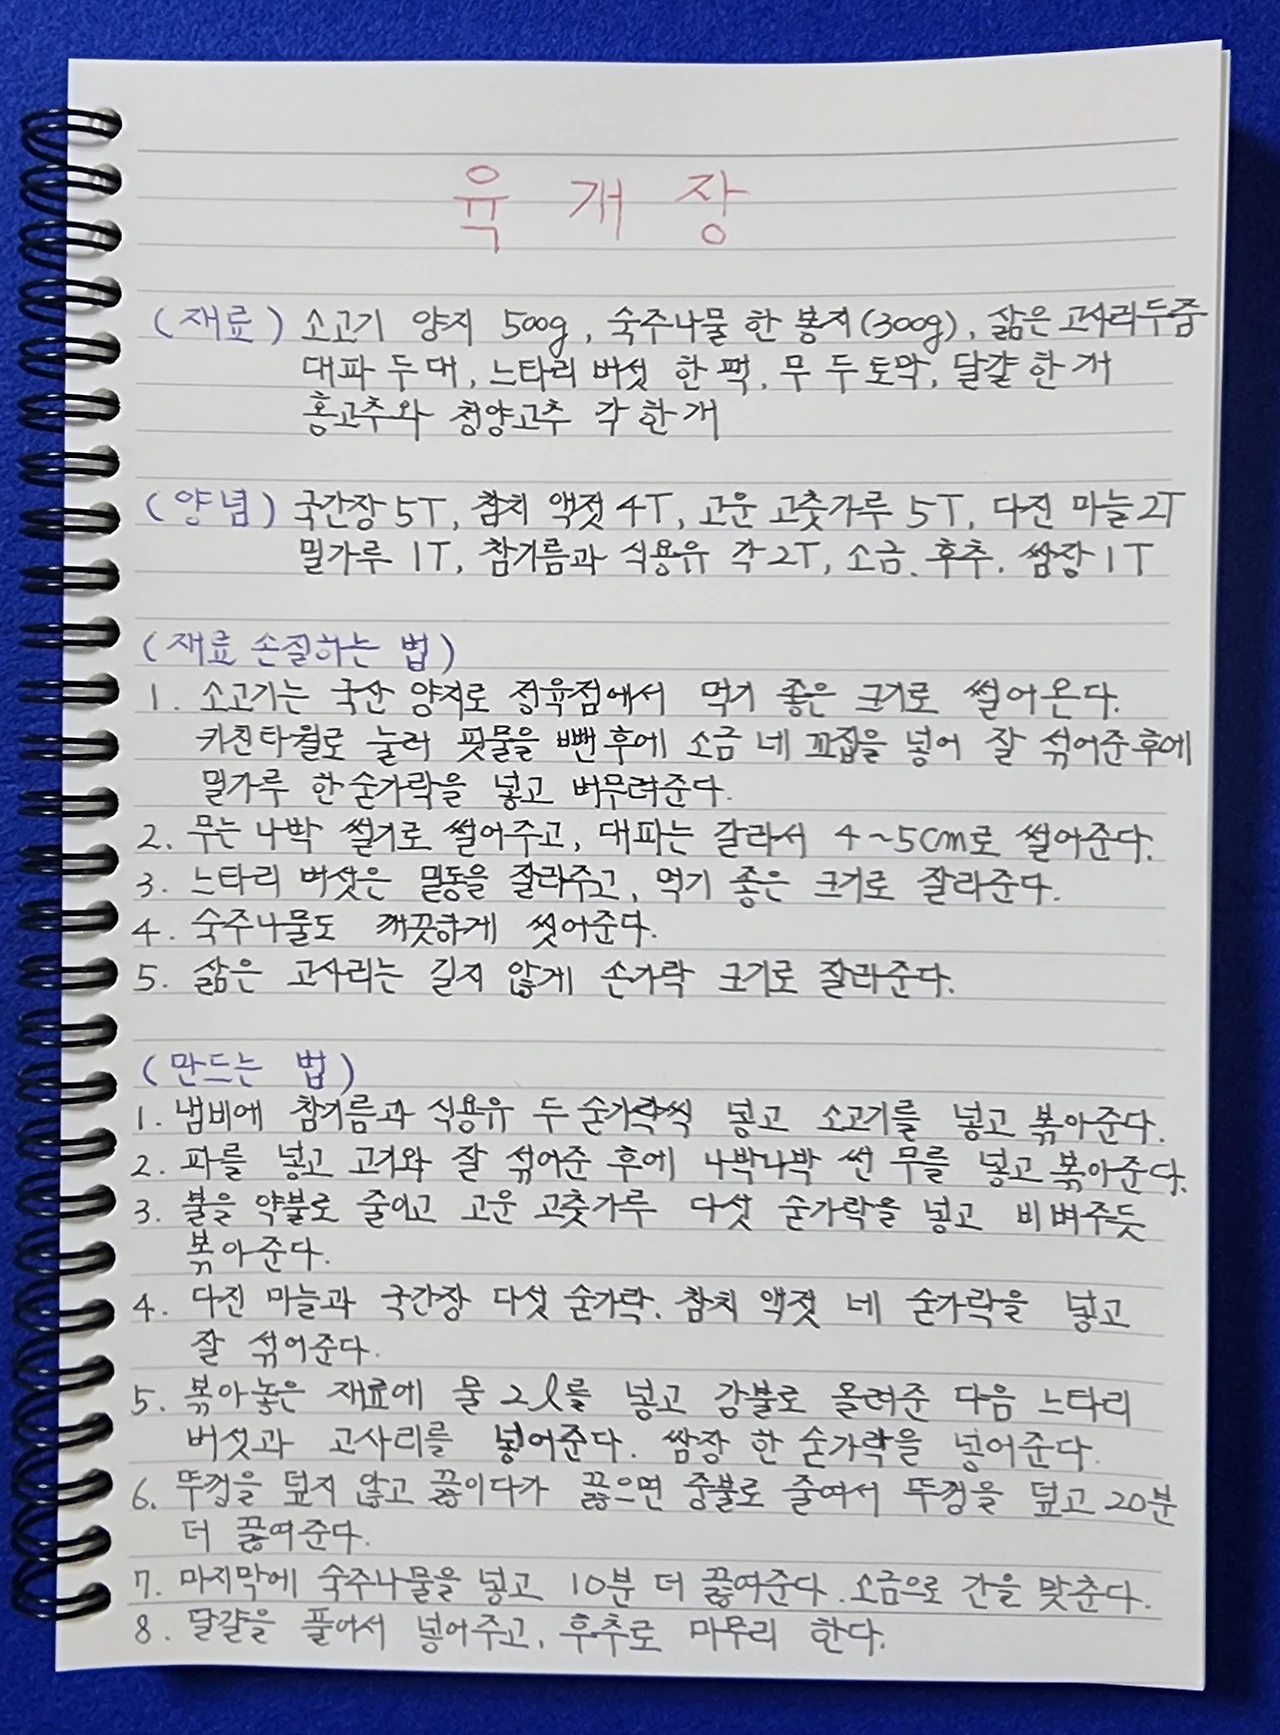 육 개 장
(재료) 소고기 양지 500g, 숙주나물 한 봉지(300g), 삶은 고사리 두줌
대파 두 대, 느타리 버섯 한 팩, 무 두 토막, 달걀 한 개
홍고추와 청양고추 각 한 개
(양념) 국간장 5T, 참치 액젓 4T, 고운 고춧가루 5T, 다진 마늘 2T
밀가루 1T, 참기름과 식용유 각 2T, 소금, 후추, 쌈장 1T
(재료 손질하는 법)
1. 소고기는 국산 양지로 정육점에서 먹기 좋은 크기로 썰어온다.
키친타월로 눌러 핏물을 뺀 후에 소금 네 꼬집을 넣어 잘 섞어준 후에
밀가루 한 숟가락을 넣고 버무려준다.
2. 무는 나박 썰기로 썰어주고, 대파는 갈라서 4~5cm로 썰어준다.
3. 느타리 버섯은 밑동을 잘라주고, 먹기 좋은 크기로 잘라준다.
4. 숙주나물도 깨끗하게 씻어준다.
5. 삶은 고사리는 길지 않게 손가락 크기로 잘라준다.
(만드는 법)
1. 냄비에 참기름과 식용유 두 숟가락씩 넣고 소고기를 넣고 볶아준다.
2. 파를 넣고 고기와 잘 섞어준 후에 나박나박 썬 무를 넣고 볶아준다.
3. 불을 약불로 줄이고 고운 고춧가루 다섯 숟가락을 넣고 비벼주듯
볶아준다.
4. 다진 마늘과 국간장 다섯 숟가락, 참치 액젓 네 숟가락을 넣고
잘 섞어준다.
5. 볶아놓은 재료에 물 2l를 넣고 강불로 올려준 다음 느타리
버섯과 고사리를 넣어준다. 쌈장 한 숟가락을 넣어준다.
6. 뚜껑을 덮지 않고 끓이다가 끓으면 중불로 줄여서 뚜껑을 덮고 20분
더 끓여준다.
7. 마지막에 숙주나물을 넣고 10분 더 끓여준다. 소금으로 간을 맞춘다.
8. 달걀을 풀어서 넣어주고, 후추로 마무리 한다.